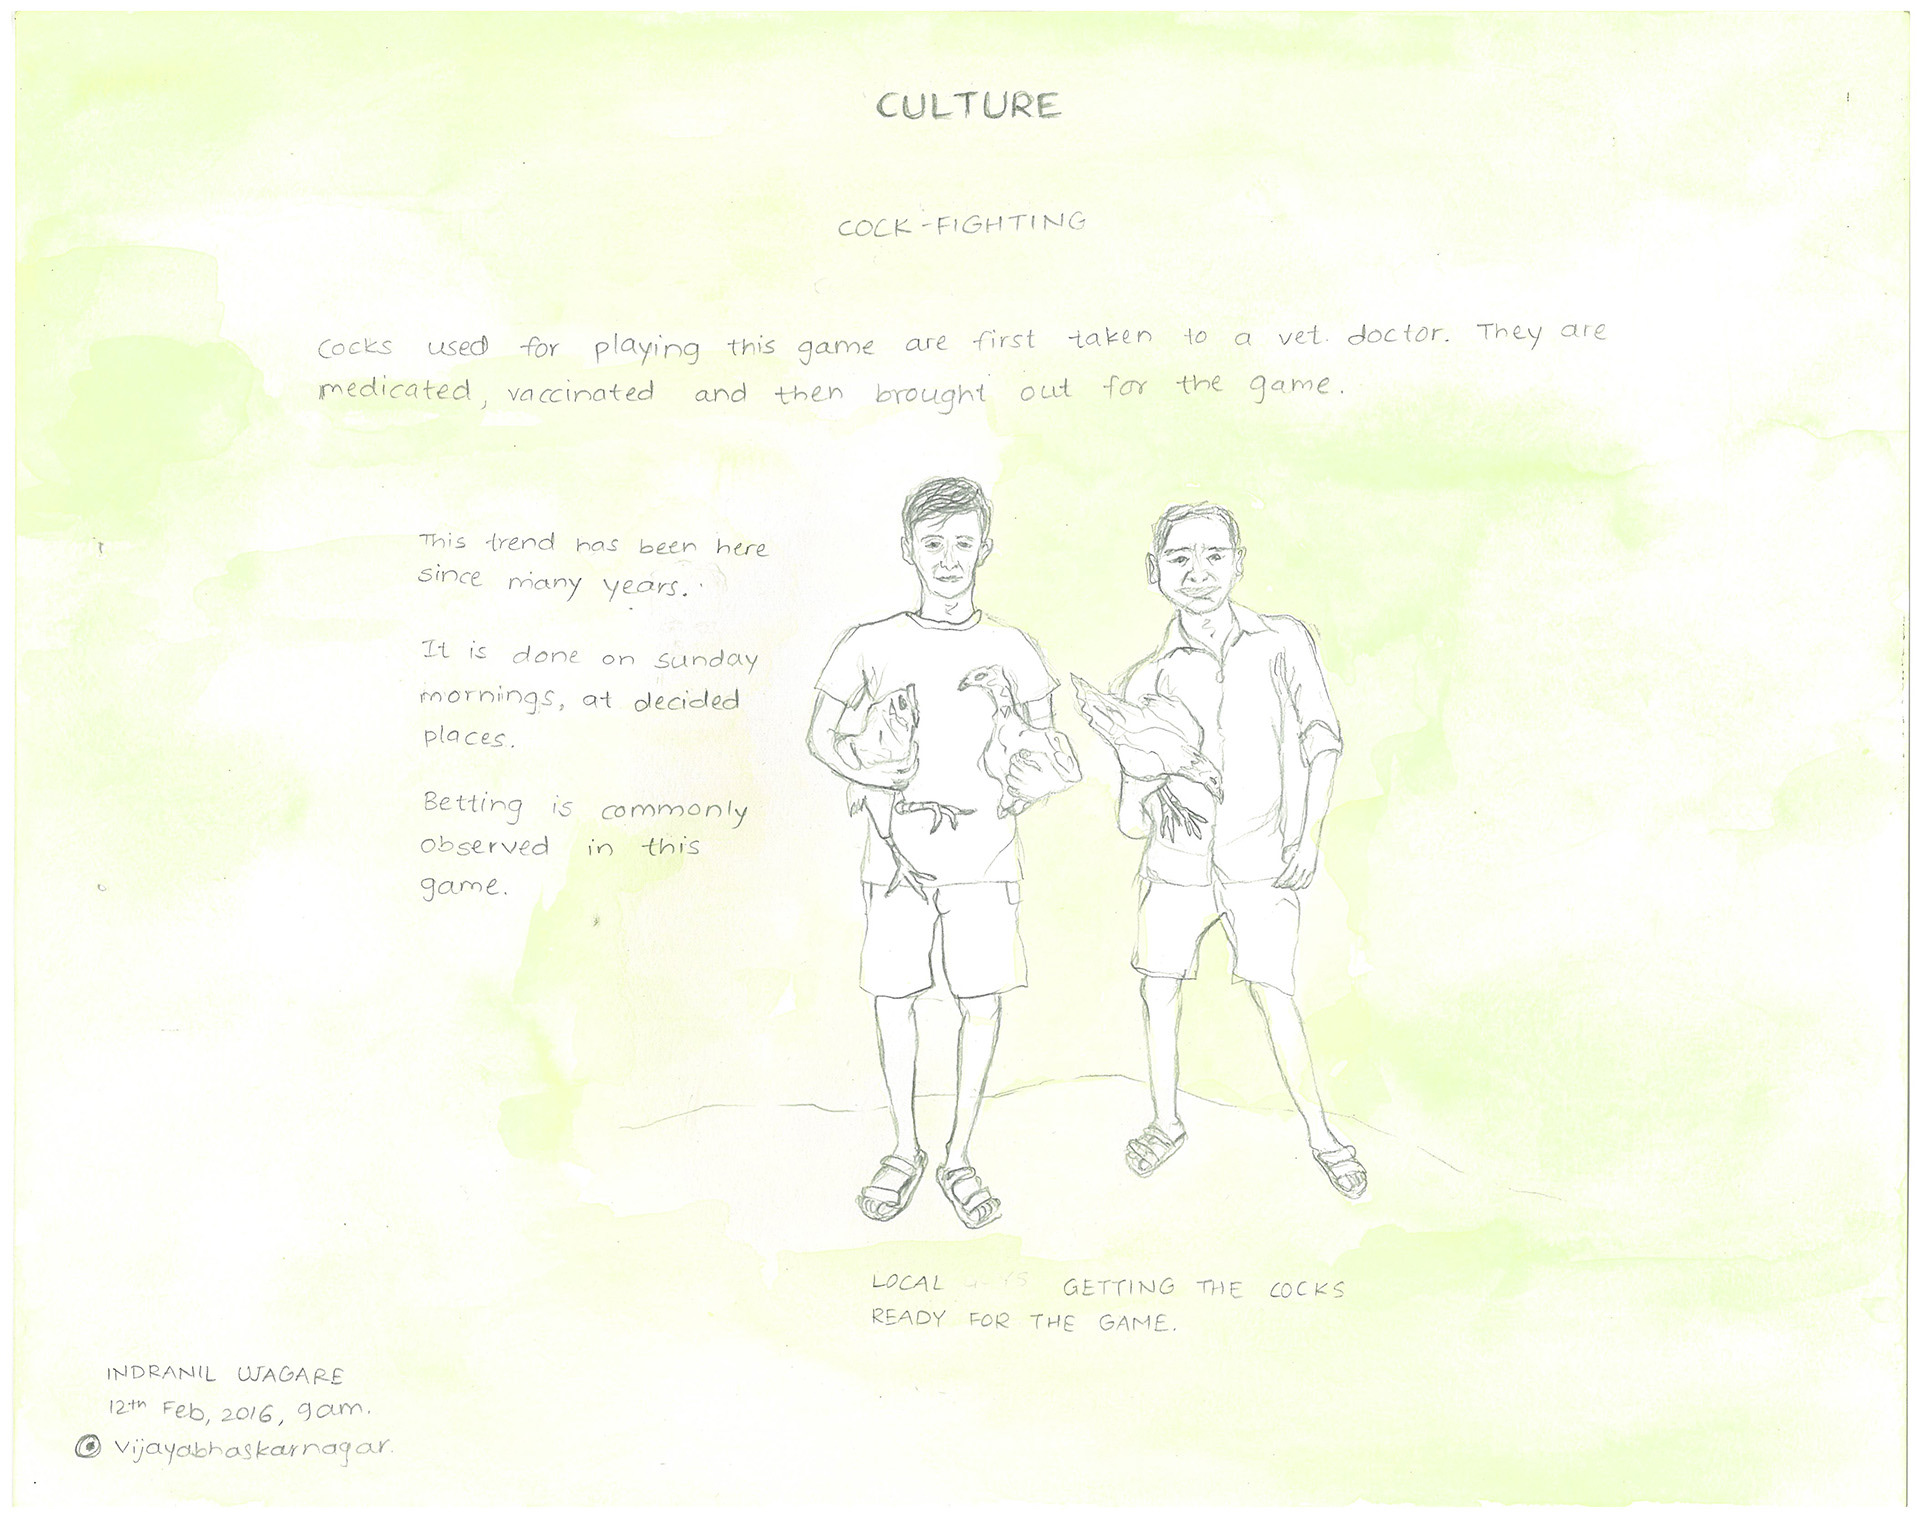 CULTURE
COCK-FIGHTING
Cocks used for playing this game are first taken to a vet. doctor. They are
medicated, vaccinated and then brought out for the game.
This trend has been here
since many years.
It is done on sunday
mornings, at decided
places.
Betting is commonly
observed in this
game.
LOCAL GETTING THE COCKS
READY FOR THE GAME.
INDRANIL WAGARE
12th Feb, 2016, 9am.
Vijayabhaskarnagar.